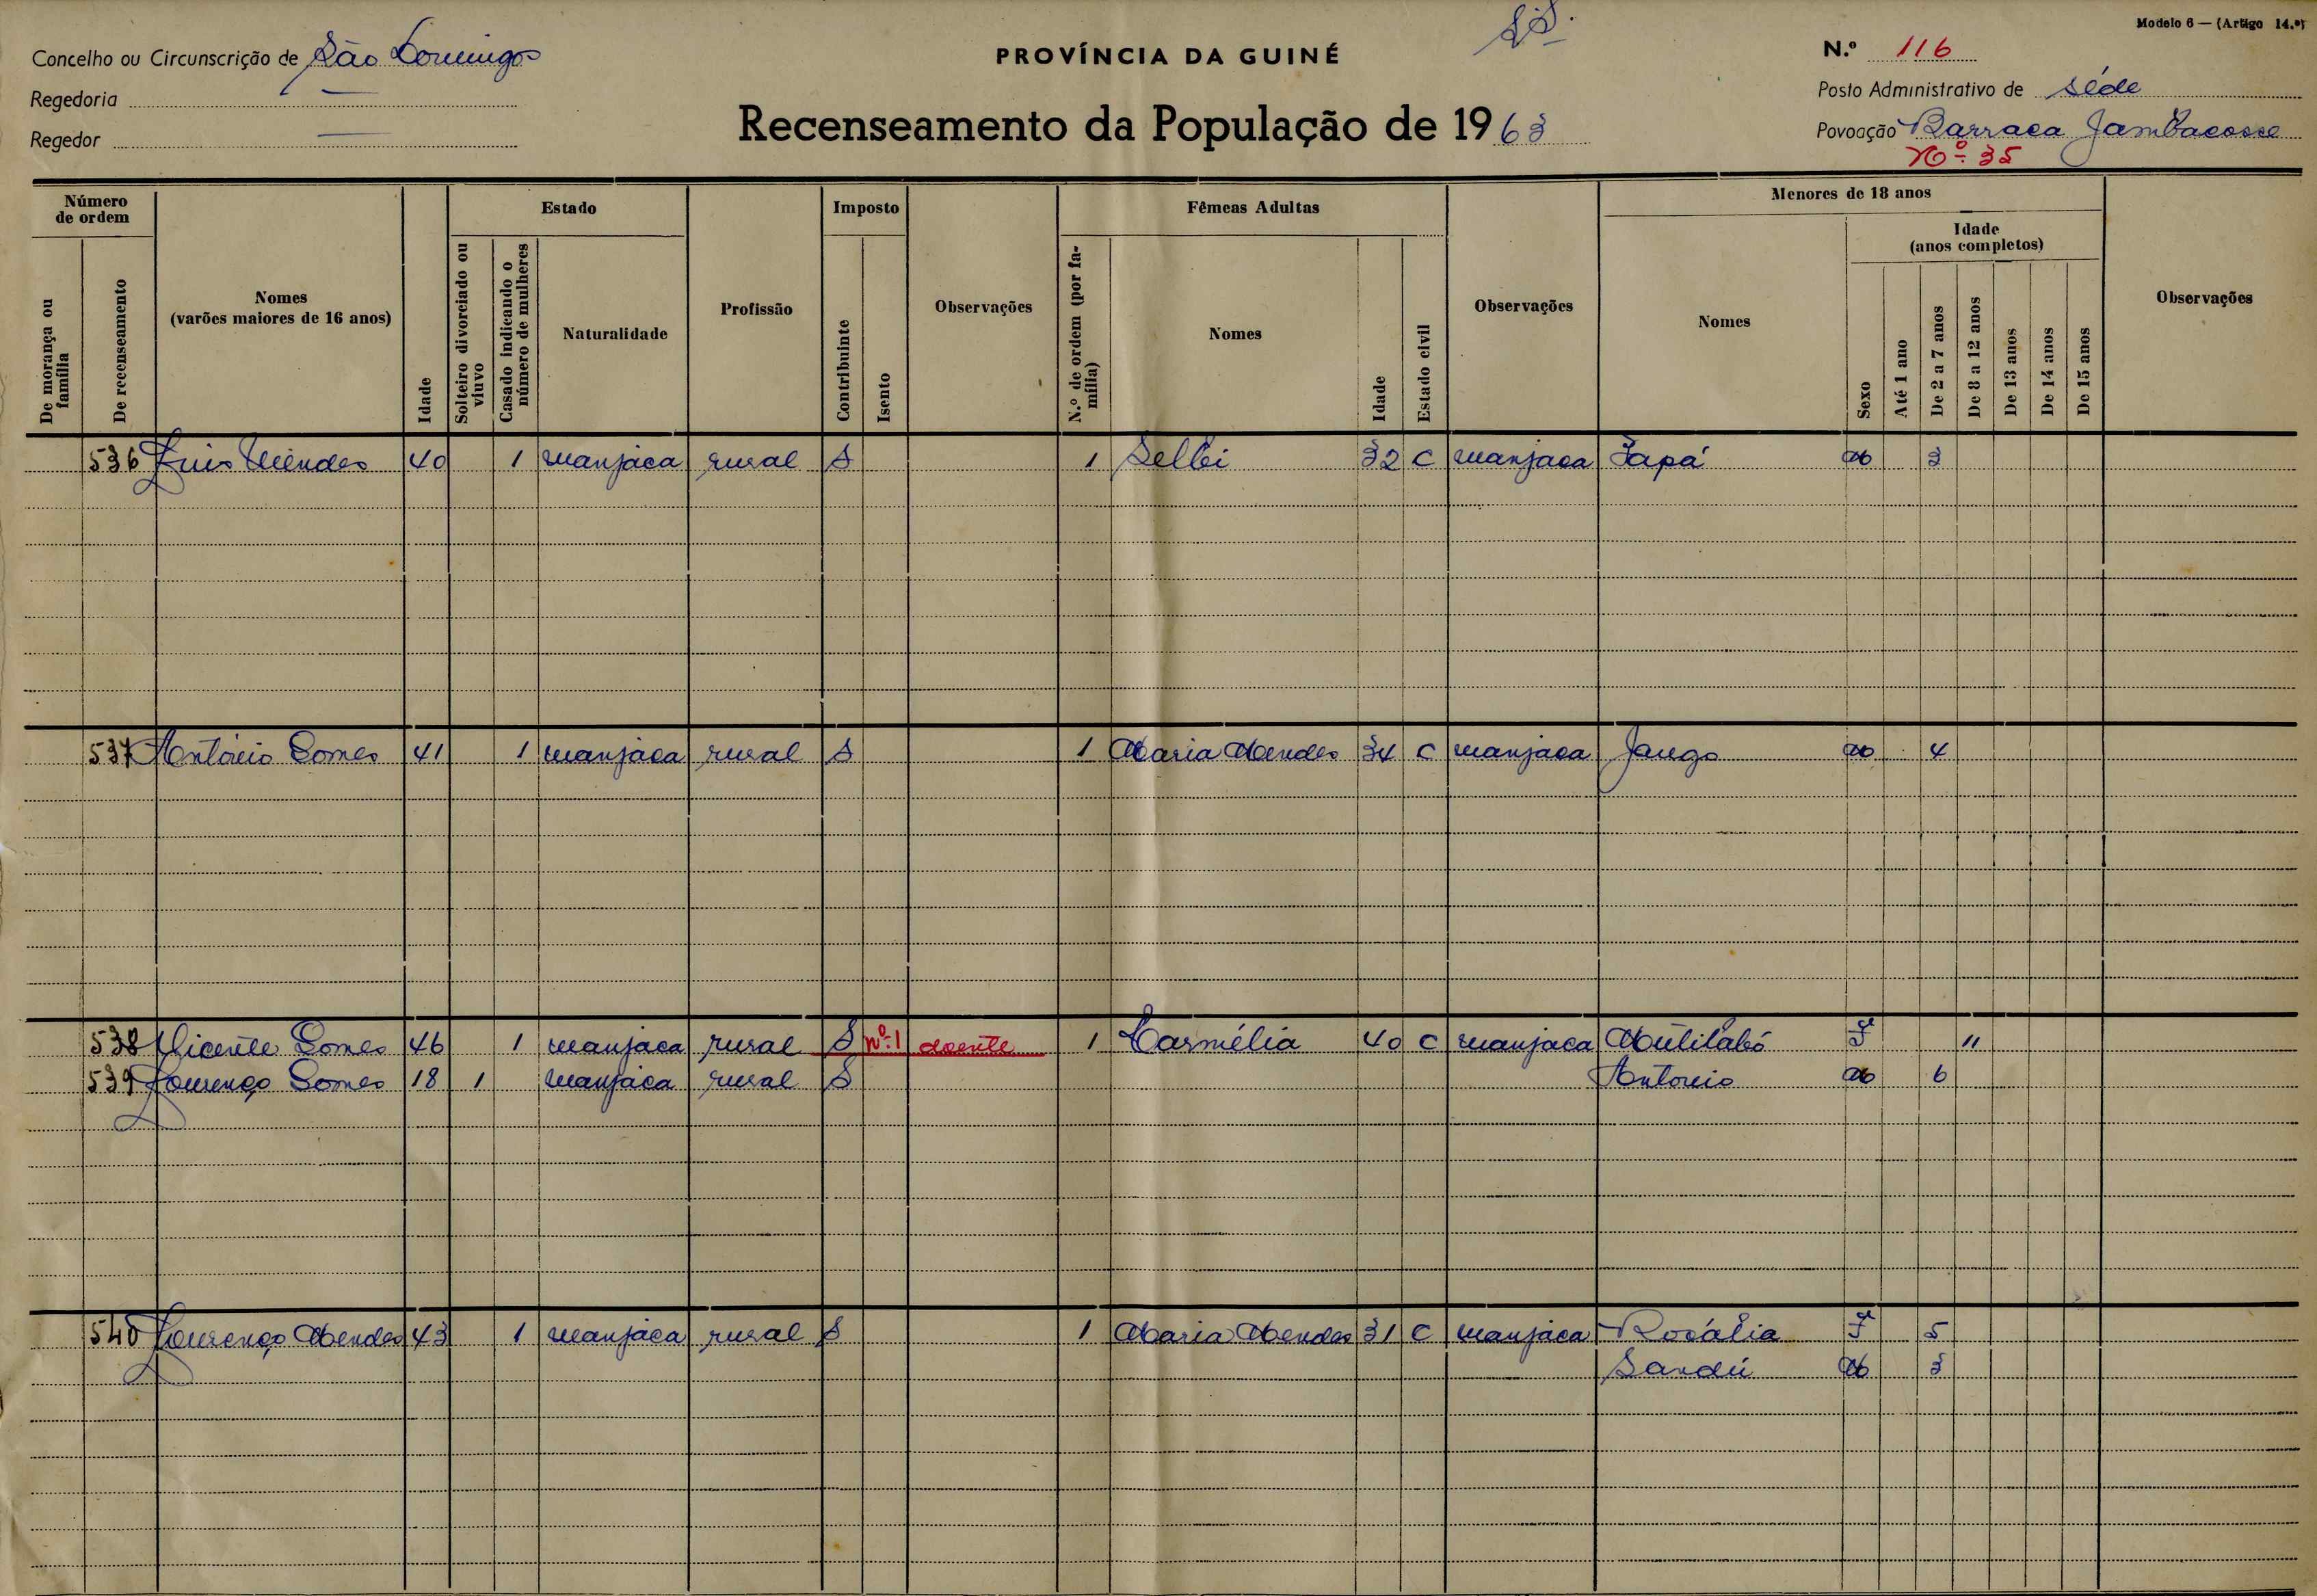 Modelo 6 — (Artigo 14.º)
S.D.
Concelho ou Circunscrição de São Domingos
PROVÍNCIA DA GUINÉ
N.º 116
Regedoria —
Posto Administrativo de Séde
Regedor —
Recenseamento da População de 1963
Povoação Barraca Jambacosse
Nº 35
Número de ordem
De morança ou família
De recenseamento
Nomes
(varões maiores de 16 anos)
Idade
Estado
Solteiro divorciado ou viuvo
Casado indicando o número de mulheres
Naturalidade
Profissão
Imposto
Contribuinte
Isento
Observações
Fêmeas Adultas
N.º de ordem (por família)
Nomes
Idade
Estado civil
Observações
Menores de 18 anos
Nomes
Sexo
Idade
(anos completos)
Até 1 ano
De 2 a 7 anos
De 8 a 12 anos
De 13 anos
De 14 anos
De 15 anos
Observações
536 Luis Mendes 40 1 manjaca rural S 1 Selbi 32 C manjaca Zapá M 3
537 António Gomes 41 1 manjaca rural S 1 Maria Mendes 34 C manjaca Jango M 4
538 Vicente Gomes 46 1 manjaca rural S nº 1 doente 1 Carmélia 40 C manjaca Mutilabó F 11
539 Lourenço Gomes 18 1 manjaca rural S Antonio M 6
540 Lourenço Mendes 43 1 manjaca rural S 1 Maria Mendes 31 C manjaca Rosália F 5
Sandú M 3